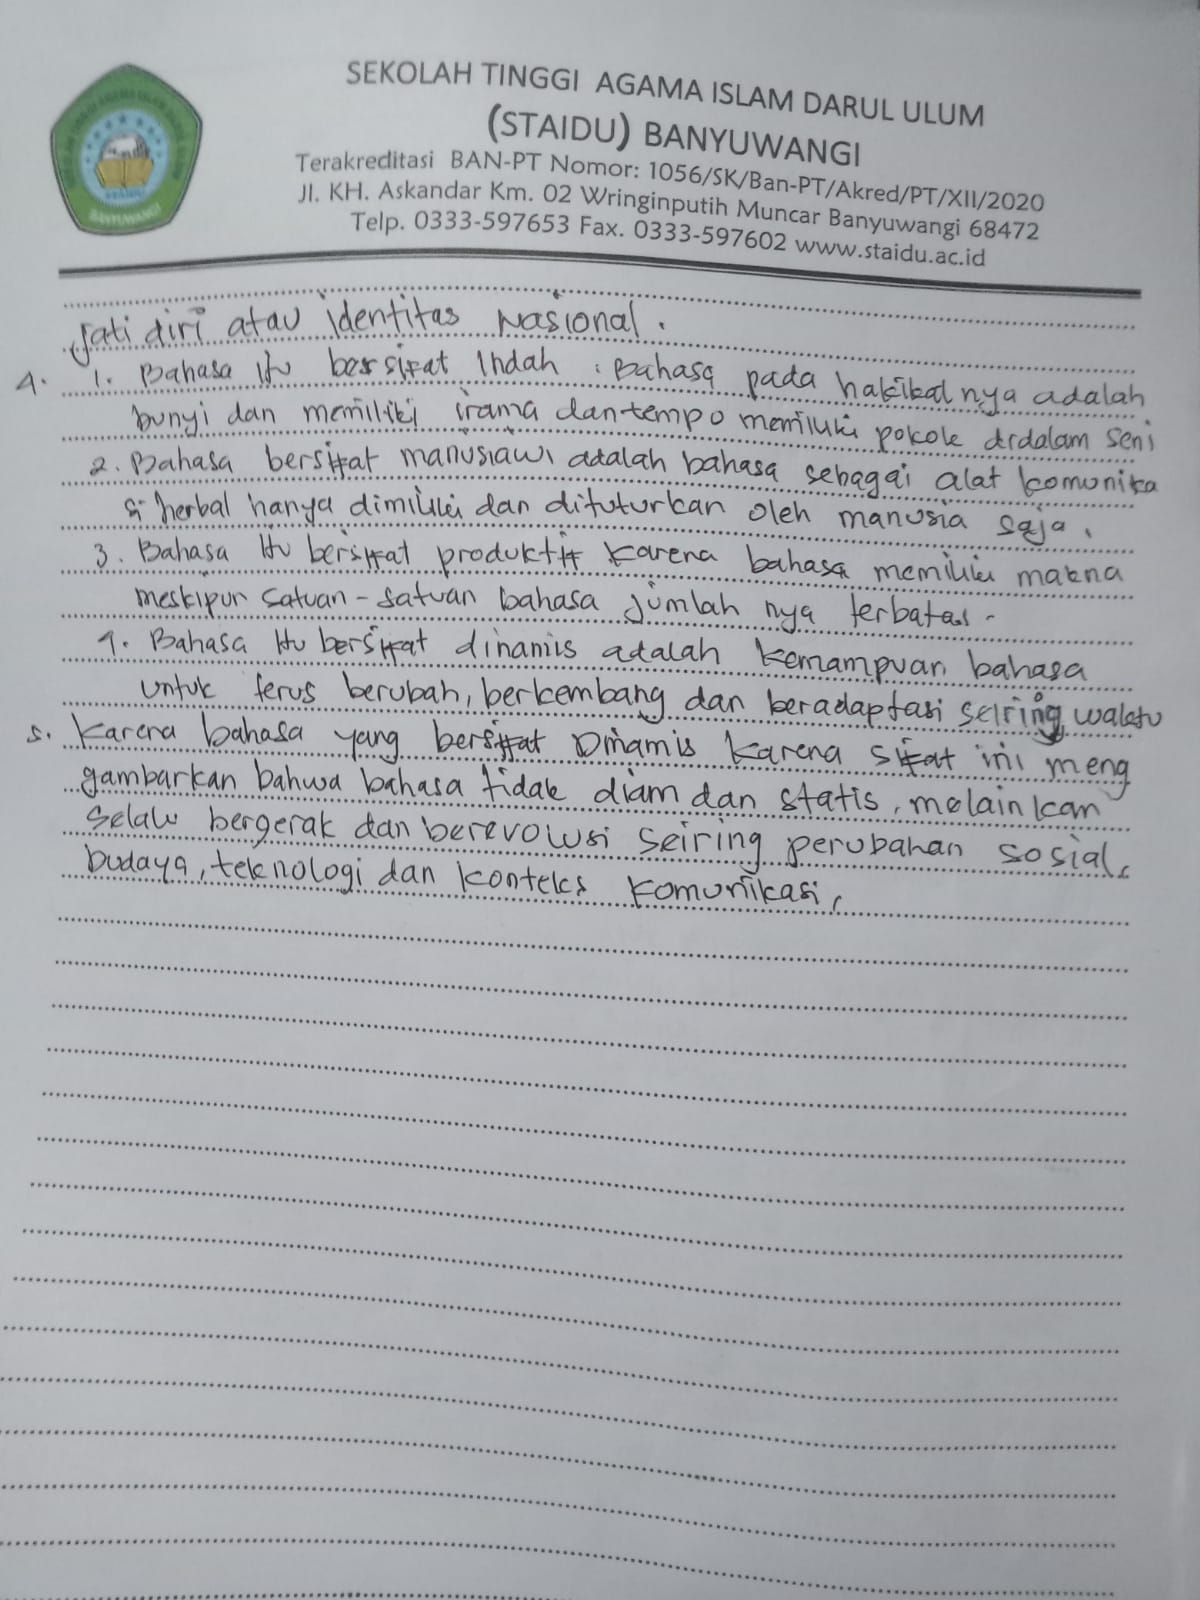 SEKOLAH TINGGI AGAMA ISLAM DARUL ULUM
(STAIDU) BANYUWANGI
Terakreditasi BAN-PT Nomor: 1056/SK/Ban-PT/Akred/PT/XII/2020
Jl. KH. Askandar Km. 02 Wringinputih Muncar Banyuwangi 68472
Telp. 0333-597653 Fax. 0333-597602 www.staidu.ac.id
STAIDU
BANYUWANGI
Jati diri atau identitas Nasional.
4. 1. Bahasa itu bersifat Indah : Bahasa pada hakikat nya adalah
bunyi dan memiliki irama dan tempo memiliki pokok didalam seni
2. Bahasa bersifat manusiawi adalah bahasa sebagai alat komunika
si herbal hanya dimiliki dan dituturkan oleh manusia saja.
3. Bahasa itu bersifat produktif karena bahasa memiliki makna
meskipun satuan-satuan bahasa jumlah nya terbatas-
4. Bahasa itu bersifat dinamis adalah kemampuan bahasa
untuk terus berubah, berkembang dan beradaptasi seiring waktu
5. Karena bahasa yang bersifat Dinamis karena sifat ini meng
gambarkan bahwa bahasa tidak diam dan statis, melainkan
selalu bergerak dan berevolusi seiring perubahan sosial,
budaya, teknologi dan konteks komunikasi,